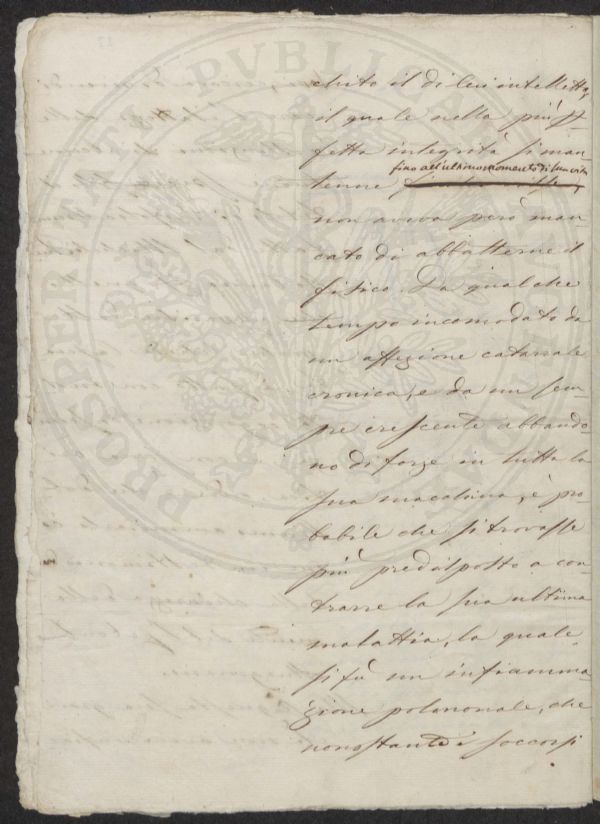 chito il di lui intelletto,
il quale nella più p
fetta integrità si man-
fino all'ultimo momento di sua vita
tenne
non aveva però man-
cato di abbatterne il
fisico. Da qualche
tempo incomodato da
un affezione catarrale
cronica, e da un sem-
pre crescente abbando-
no di forze in tutta la
sua macchina, è pro-
babile che si trovasse
più predisposto a con-
trarre la sua ultima
malattia, la quale
si fù un infiamma-
zione polmonale, che
nonostante i soccorsi
PROSPERITATI PUBLICAE